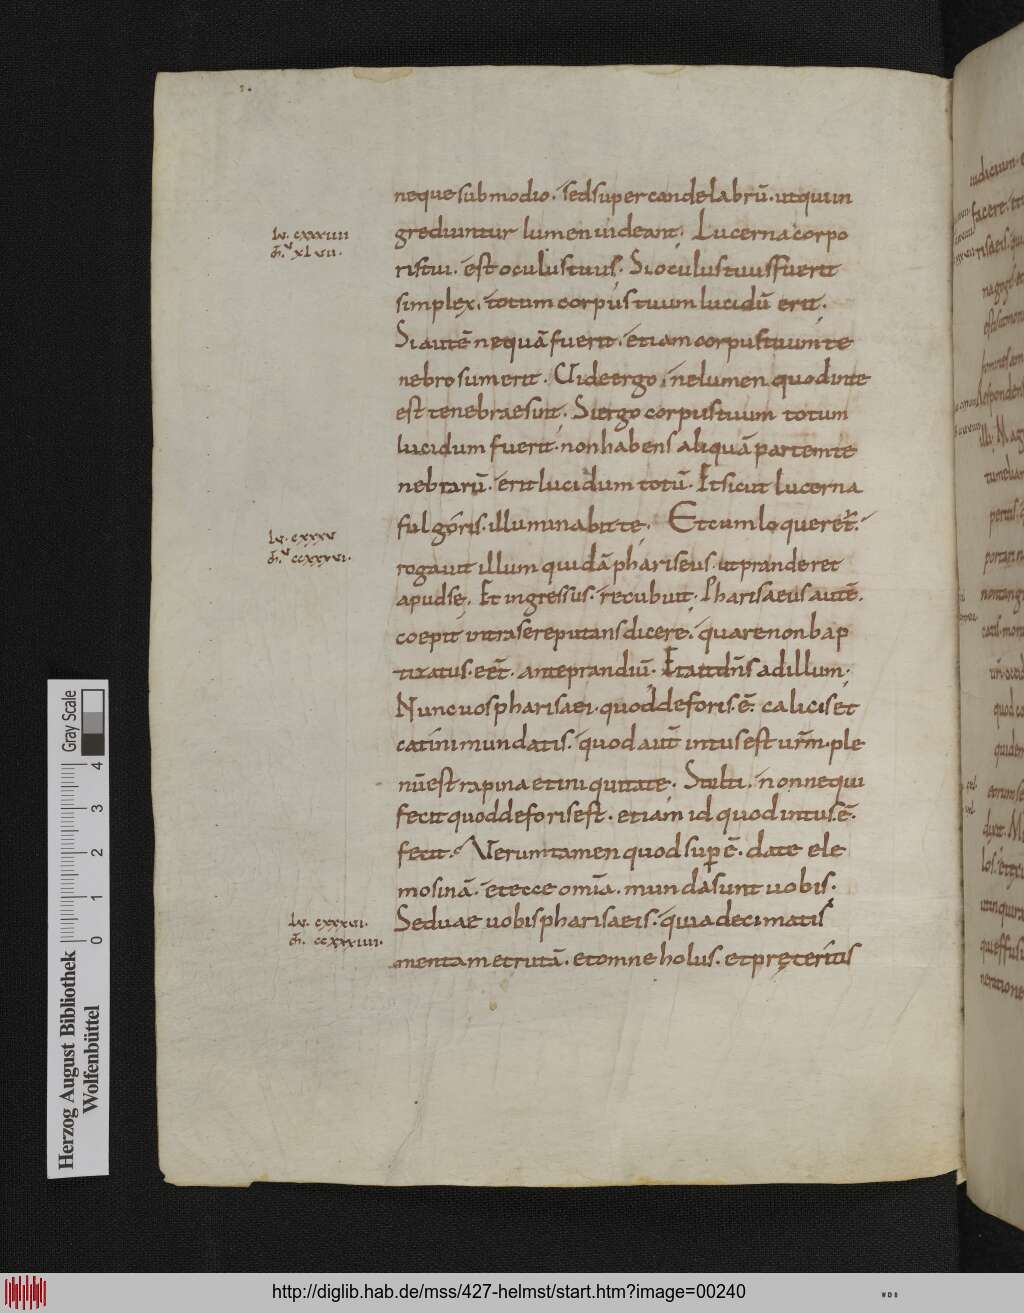 neque sub modio. sed super candelabrū. ut qui in
lv. cxxxiiii
m̄. xlvii.
grediuntur lumen videant. Lucerna corpo
ris tui. est oculus tuus. Si oculus tuus fuerit
simplex. totum corpus tuum lucidū erit.
Si autē nequā fuerit. etiam corpus tuum te
nebrosum erit. Vide ergo. ne lumen quod in te
est tenebrae sint. Si ergo corpus tuum totum
lucidum fuerit. non habens aliquā partem te
nebrarū. erit lucidum totū. Et sicut lucerna
fulgoris. illuminabit te. Et cum loqueret̄.
lv. cxxxv
m̄. ccxxxvi.
rogavit illum quidā phariseus. ut pranderet
apud se. Et ingressus. recubuit. Pharisaeus autē.
coepit intra sē reputans dicere. quare non bap
tizatus. eēt̄. ante prandiū. Et ait dn̄s ad illum.
Nunc vos pharisaei. quod deforis. ē. calicis et
catini mundatis. quod aut̄ intus est ur̄m. ple
nū est rapina et iniquitate. Stulti. nonne qui
fecit quod deforis est. etiam id quod intus. ē.
fecit. Verumtamen quod sup̄ ē. date ele
mosinā. et ecce omīa. munda sunt vobis.
lv. cxxxvi.
m̄. ccxxxiiii.
Sed vae vobis pharisaeis. quia decimatis
mentam et rutā. et omne holus. et pręteritis
Gray Scale
0 1 2 3 4
Herzog August Bibliothek
Wolfenbüttel
http://diglib.hab.de/mss/427-helmst/start.htm?image=00240